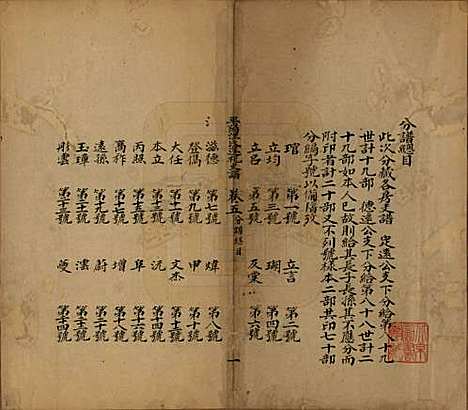 分譜總目
此次分藏各房支譜 定遠公支下分給第八十九
世計十九部 德遠公支下分給第八十八世計二
十九部如本人已故則給其長子長孫其不應分而
附印者計二十部又不列號樣本二部其印七十部
分編字號以備稽攷
琯 第一號 立言 第二號
立均 第三號 瑚 第四號
立呂 第五號 及棠 第六號
卷五 分譜總目 一
滋德 第七號 煒 第八號
登儁 第九號 申 第十號
大任 第十一號 文杰 第十二號
本立 第十三號 沅 第十四號
丙照 第十五號 阜 第十六號
萬祚 第十七號 增 第十八號
遠孫 第十九號 蔚 第二十號
玉璋 第二十一號 濡 第二十二號
彤雲 第二十三號 夔 第二十四號